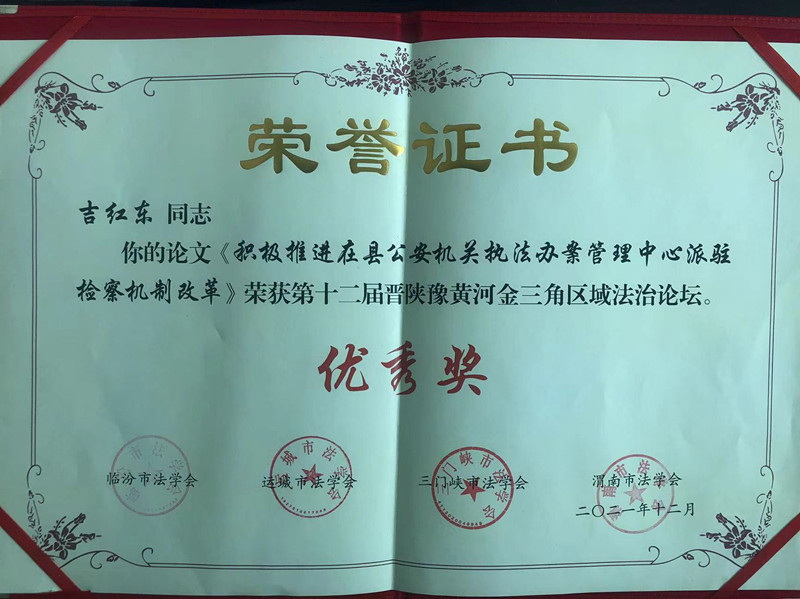 荣誉证书
吉红东 同志
你的论文《积极推进在县公安机关执法办案管理中心派驻
检察机制改革》荣获第十二届晋陕豫黄河金三角区域法治论坛。
优秀奖
临汾市法学会 运城市法学会 三门峡市法学会 渭南市法学会
二〇二一年十二月